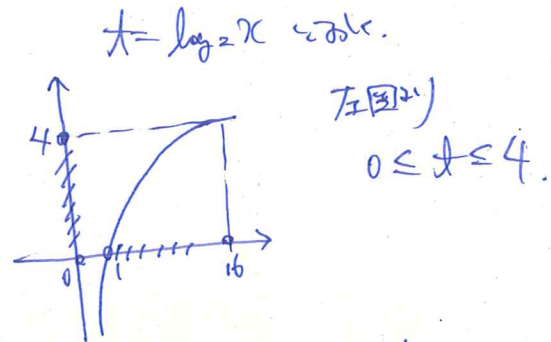 t = log₂x とおく.
左図より
0 ≤ t ≤ 4.
4
0
1
16